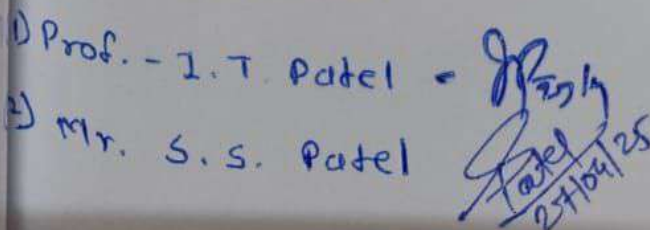 1) Prof. - I. T. Patel -
2) Mr. S. S. Patel Patel
27/04/25